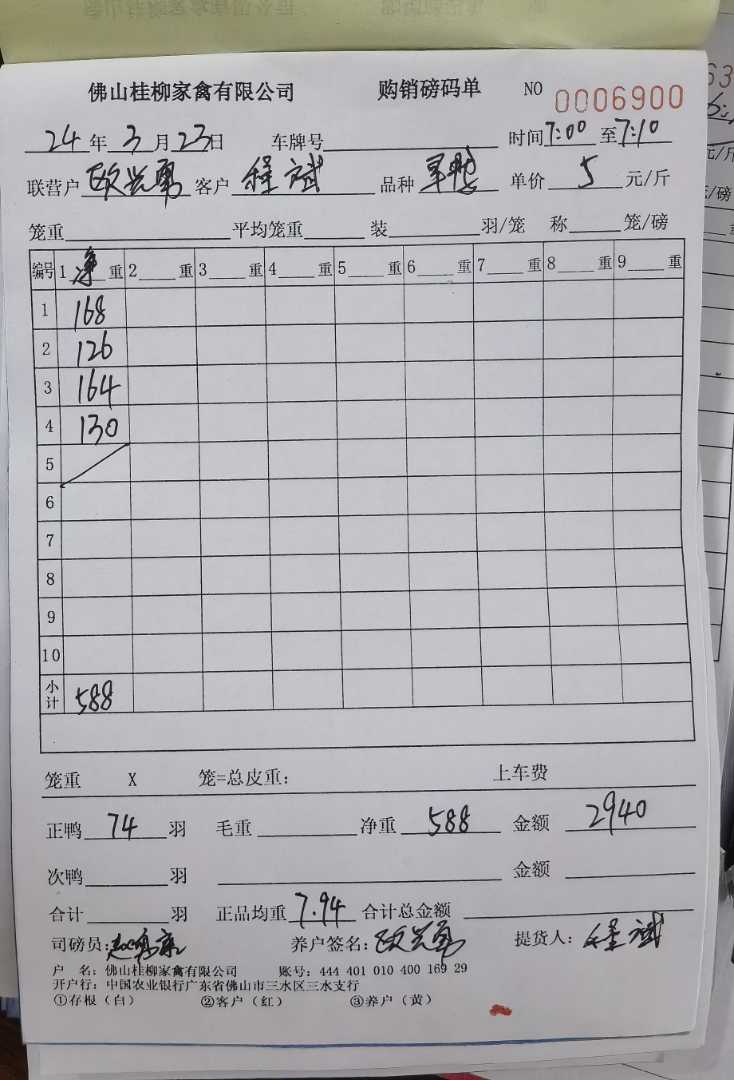 佛山桂柳家禽有限公司 购销磅码单 NO 0006900
24年3月23日 车牌号 时间7:00至7:10
联营户 欧兴勇 客户 程斌 品种 单价 5 元/斤
笼重 平均笼重 装 羽/笼 称 笼/磅
编号 1 净 重 2 重 3 重 4 重 5 重 6 重 7 重 8 重 9 重
1 168
2 126
3 164
4 130
5
6
7
8
9
10
小计 588
笼重 X 笼=总皮重: 上车费
正鸭 74 羽 毛重 净重 588 金额 2940
次鸭 羽 金额
合计 羽 正品均重 7.94 合计总金额
司磅员: 养户签名: 欧兴勇 提货人: 程斌
户 名: 佛山桂柳家禽有限公司 账号: 444 401 010 400 169 29
开户行: 中国农业银行广东省佛山市三水区三水支行
①存根（白） ②客户（红） ③养户（黄）